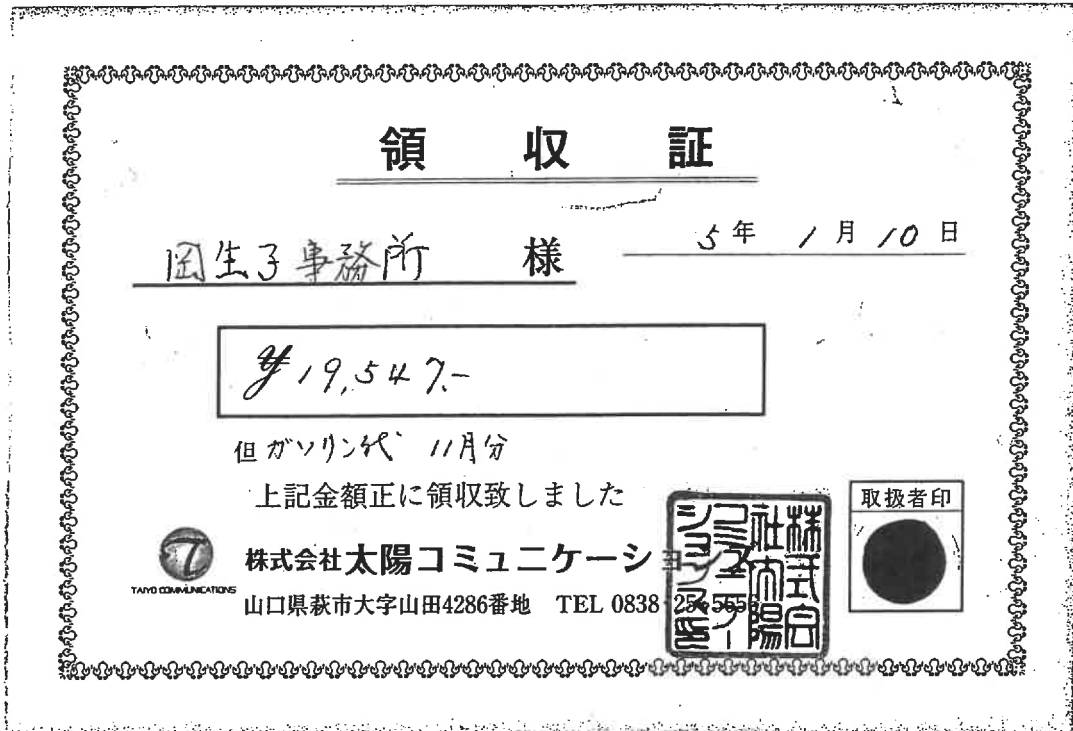 領収証
岡生子事務所 様
5年 1月 10日
¥19,547.-
但 ガソリン代 11月分
上記金額正に領収致しました
取扱者印
TAIYO COMMUNICATIONS
株式会社太陽コミュニケーションズ
山口県萩市大字山田4286番地 TEL 0838
株式会社太陽コミュニケーションズ